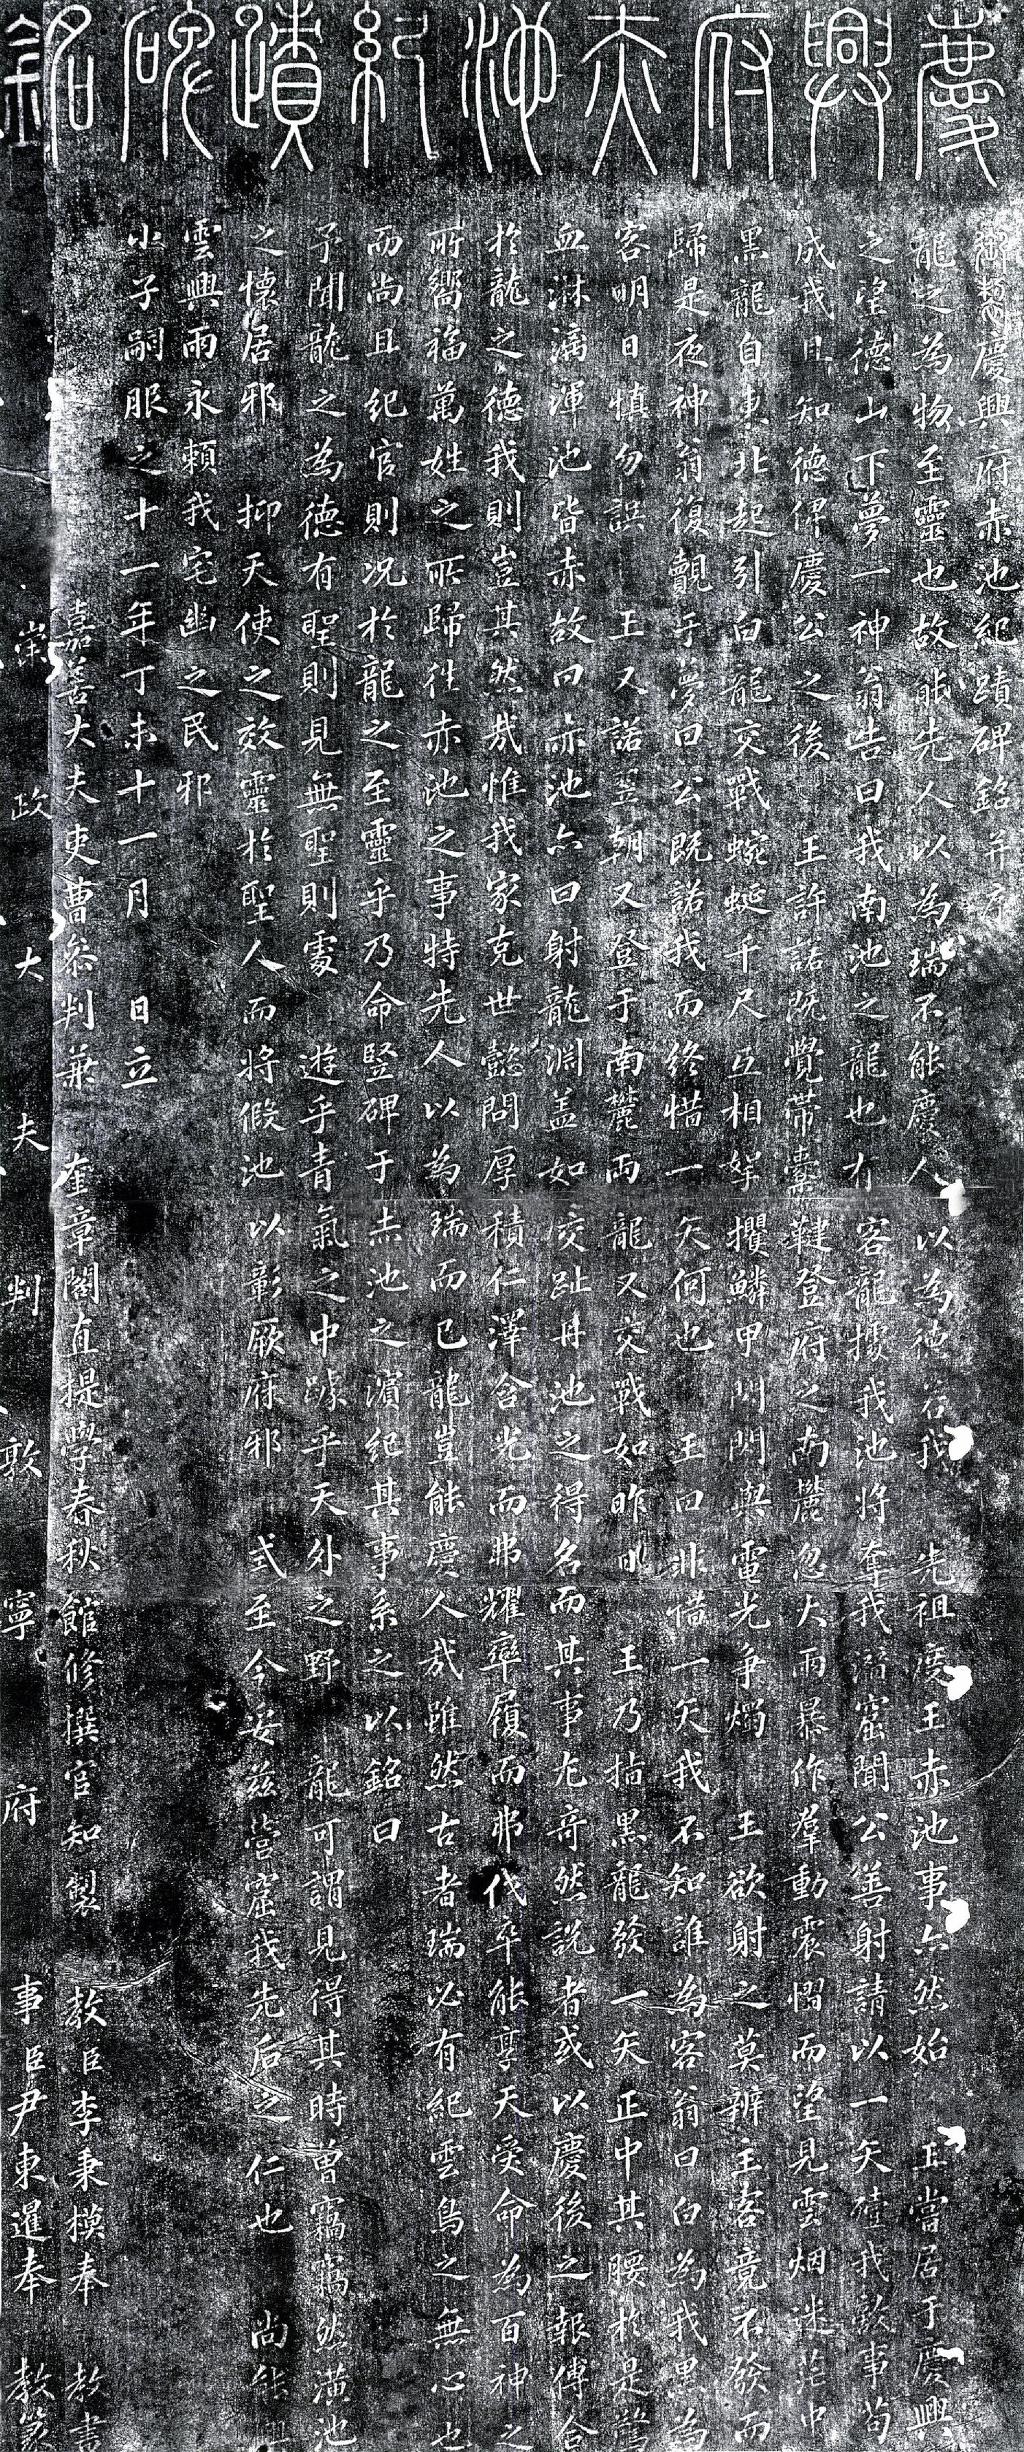 慶興府赤池紀蹟碑銘
御製慶興府赤池紀蹟碑銘并序
龍之為物至靈也故能先人以為瑞不能慶人以為德若我先祖度王赤池事亦然始王嘗居于慶興
之望德山下夢一神翁告曰我南池之龍也有客龍攄我池將奪我潏窟聞公善射請以一矢殪我敵事苟
成我且知德俾慶公之後王許諾既覺帶櫜鞬登府之南麓忽大雨暴作羣動震慴而望見雲烟迷茫中
黑龍自東北起引白龍交戰蜿蜒千尺互相拏攫鱗甲閃閃與電光爭燭王欲射之莫辨主客竟不發而
歸是夜神翁復覿乎夢曰公既諾我而終惜一矢何也王曰非惜一矢我不知誰為客翁曰白為我黑為
客明日慎勿誤王又諾翌朝又登于南麓兩龍又交戰如昨王乃搯黑龍發一矢正中其腰於是鶯
血淋漓渾池皆赤故曰赤池亦曰射龍淵盖如交趾丹池之得名而其事尤奇然說者或以慶後之報傅合
於龍之德我則豈其然哉惟我家克世懿問厚積仁澤含光而弗耀率履而弗伐卒能享天受命為百神之
所嚮福萬姓之所歸往赤池之事特先人以為瑞而已龍豈能慶人哉雖然古者瑞必有紀雲鳥之無心也
而尚且紀官則况於龍之至靈乎乃命竪碑于赤池之濱紀其事系之以銘曰
予聞龍之為德有聖則見無聖則處遊乎青氣之中跡乎天外之野龍可謂見得其時曽窩窩然潢池
之懷居邪抑天使之效靈於聖人而將假池以彰厥府邪式至今妥兹營窟我先后之仁也尚能興
雲興雨永賴我宅幽之民邪
小子嗣服之十一年丁未十一月日立
嘉善大夫吏曹叅判兼奎章閣直提學春秋館修撰官知製教臣李秉模奉教書
崇政大夫判敦寧府事臣尹東暹奉教篆